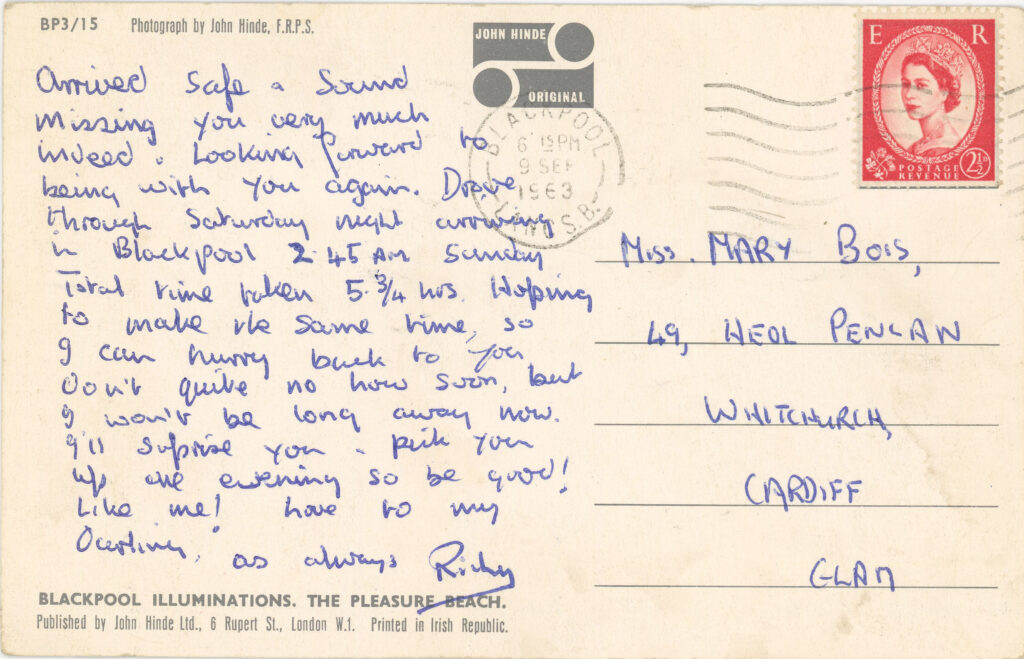 BP3/15 Photograph by John Hinde, F.R.P.S.
JOHN HINDE
ORIGINAL
Arrived Safe & Sound
Missing you very much
indeed. Looking forward to
being with you again. Drove
through Saturday night arriving
in Blackpool 2.45 AM Sunday
Total time taken 5.3/4 hrs. Hoping
to make the same time, so
I can hurry back to you
Don't quite no how soon, but
I won't be long away now.
I'll suprise you & pick you
up one evening so be good!
Like me! Love to my
Darling, as always Richy
BLACKPOOL ILLUMINATIONS. THE PLEASURE BEACH.
Published by John Hinde Ltd., 6 Rupert St., London W.1. Printed in Irish Republic.
BLACKPOOL
6 15 PM
9 SEP
1963
LANCS.B.
E R
POSTAGE
REVENUE
2½D
Miss. MARY BOIS,
49, HEOL PENLAN
WHITCHURCH,
CARDIFF
GLAM